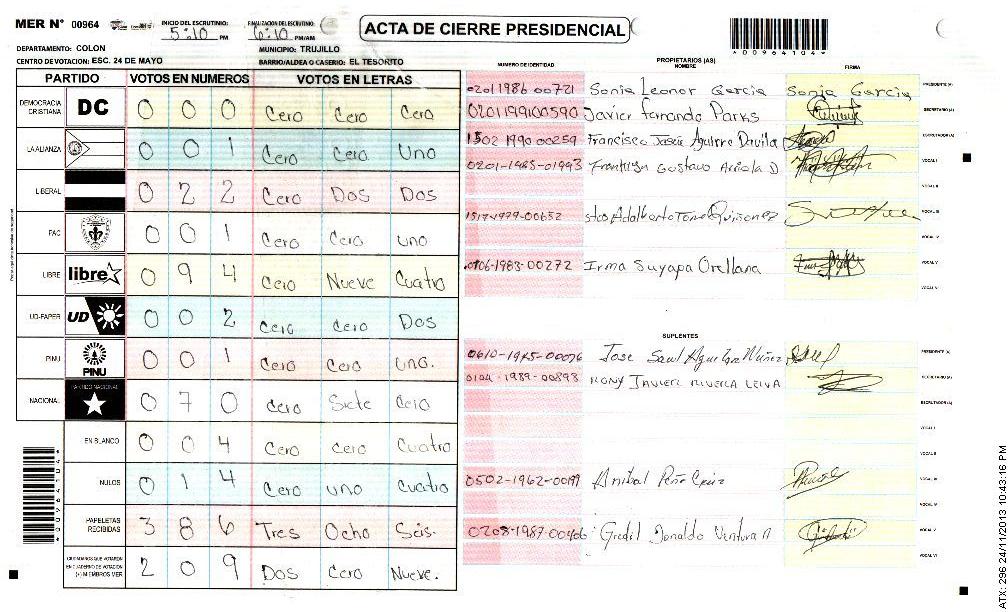 MER N° 00964
INICIO DEL ESCRUTINIO: 5:10 PM
FINALIZACION DEL ESCRUTINIO: 6:10 PM/AM
ACTA DE CIERRE PRESIDENCIAL
*00964104*
DEPARTAMENTO: COLON
MUNICIPIO: TRUJILLO
CENTRO DE VOTACION: ESC. 24 DE MAYO
BARRIO/ALDEA O CASERIO: EL TESORITO
PARTIDO VOTOS EN NUMEROS VOTOS EN LETRAS
DEMOCRACIA CRISTIANA DC 0 0 0 Cero Cero Cero
LA ALIANZA 0 0 1 Cero Cero Uno
LIBERAL 0 2 2 Cero Dos Dos
PAC 0 0 1 Cero Cero uno
LIBRE libre 0 9 4 Cero Nueve Cuatro
UD-FAPER UD 0 0 2 Cero cero Dos
PINU PINU 0 0 1 Cero Cero uno.
NACIONAL PARTIDO NACIONAL 0 7 0 Cero Siete Cero
EN BLANCO 0 0 4 Cero cero Cuatro
NULOS 0 1 4 Cero uno Cuatro
PAPELETAS RECIBIDAS 3 8 6 Tres Ocho Seis.
CIUDADANOS QUE VOTARON EN CUADERNO DE VOTACION (+) MIEMBROS MER 2 0 9 Dos Cero Nueve.
*00964104*
NUMERO DE IDENTIDAD
PROPIETARIOS (AS)
NOMBRE
FIRMA
0201 1986 00721 Sonia Leonor Garcia Sonia Garcia PRESIDENTE (A)
0201199100590 Javier Fernando Parks SECRETARIO (A)
1502 1990 00259 Francisco Josue Aguirre Davila ESCRUTADOR (A)
0201-1985-01993 Franklyn Gustavo Arriola D VOCAL I
VOCAL II
1517-1979-00652 Adalberto VOCAL III
VOCAL IV
1983-00272 Irma Suyapa Orellana VOCAL V
VOCAL VI
SUPLENTES
0610-1965-00076 Jose Saul Nuñez PRESIDENTE (A)
0104-1989-00893 RONY JAVIER RIVERA LEIVA SECRETARIO (A)
ESCRUTADOR (A)
VOCAL I
VOCAL II
0502-1962-00197 Anibal Peña Cruz VOCAL III
VOCAL IV
0208-1987-00406 Gredil Donaldo Ventura VOCAL V
VOCAL VI
ATX: 296 24/11/2013 10:43:16 PM